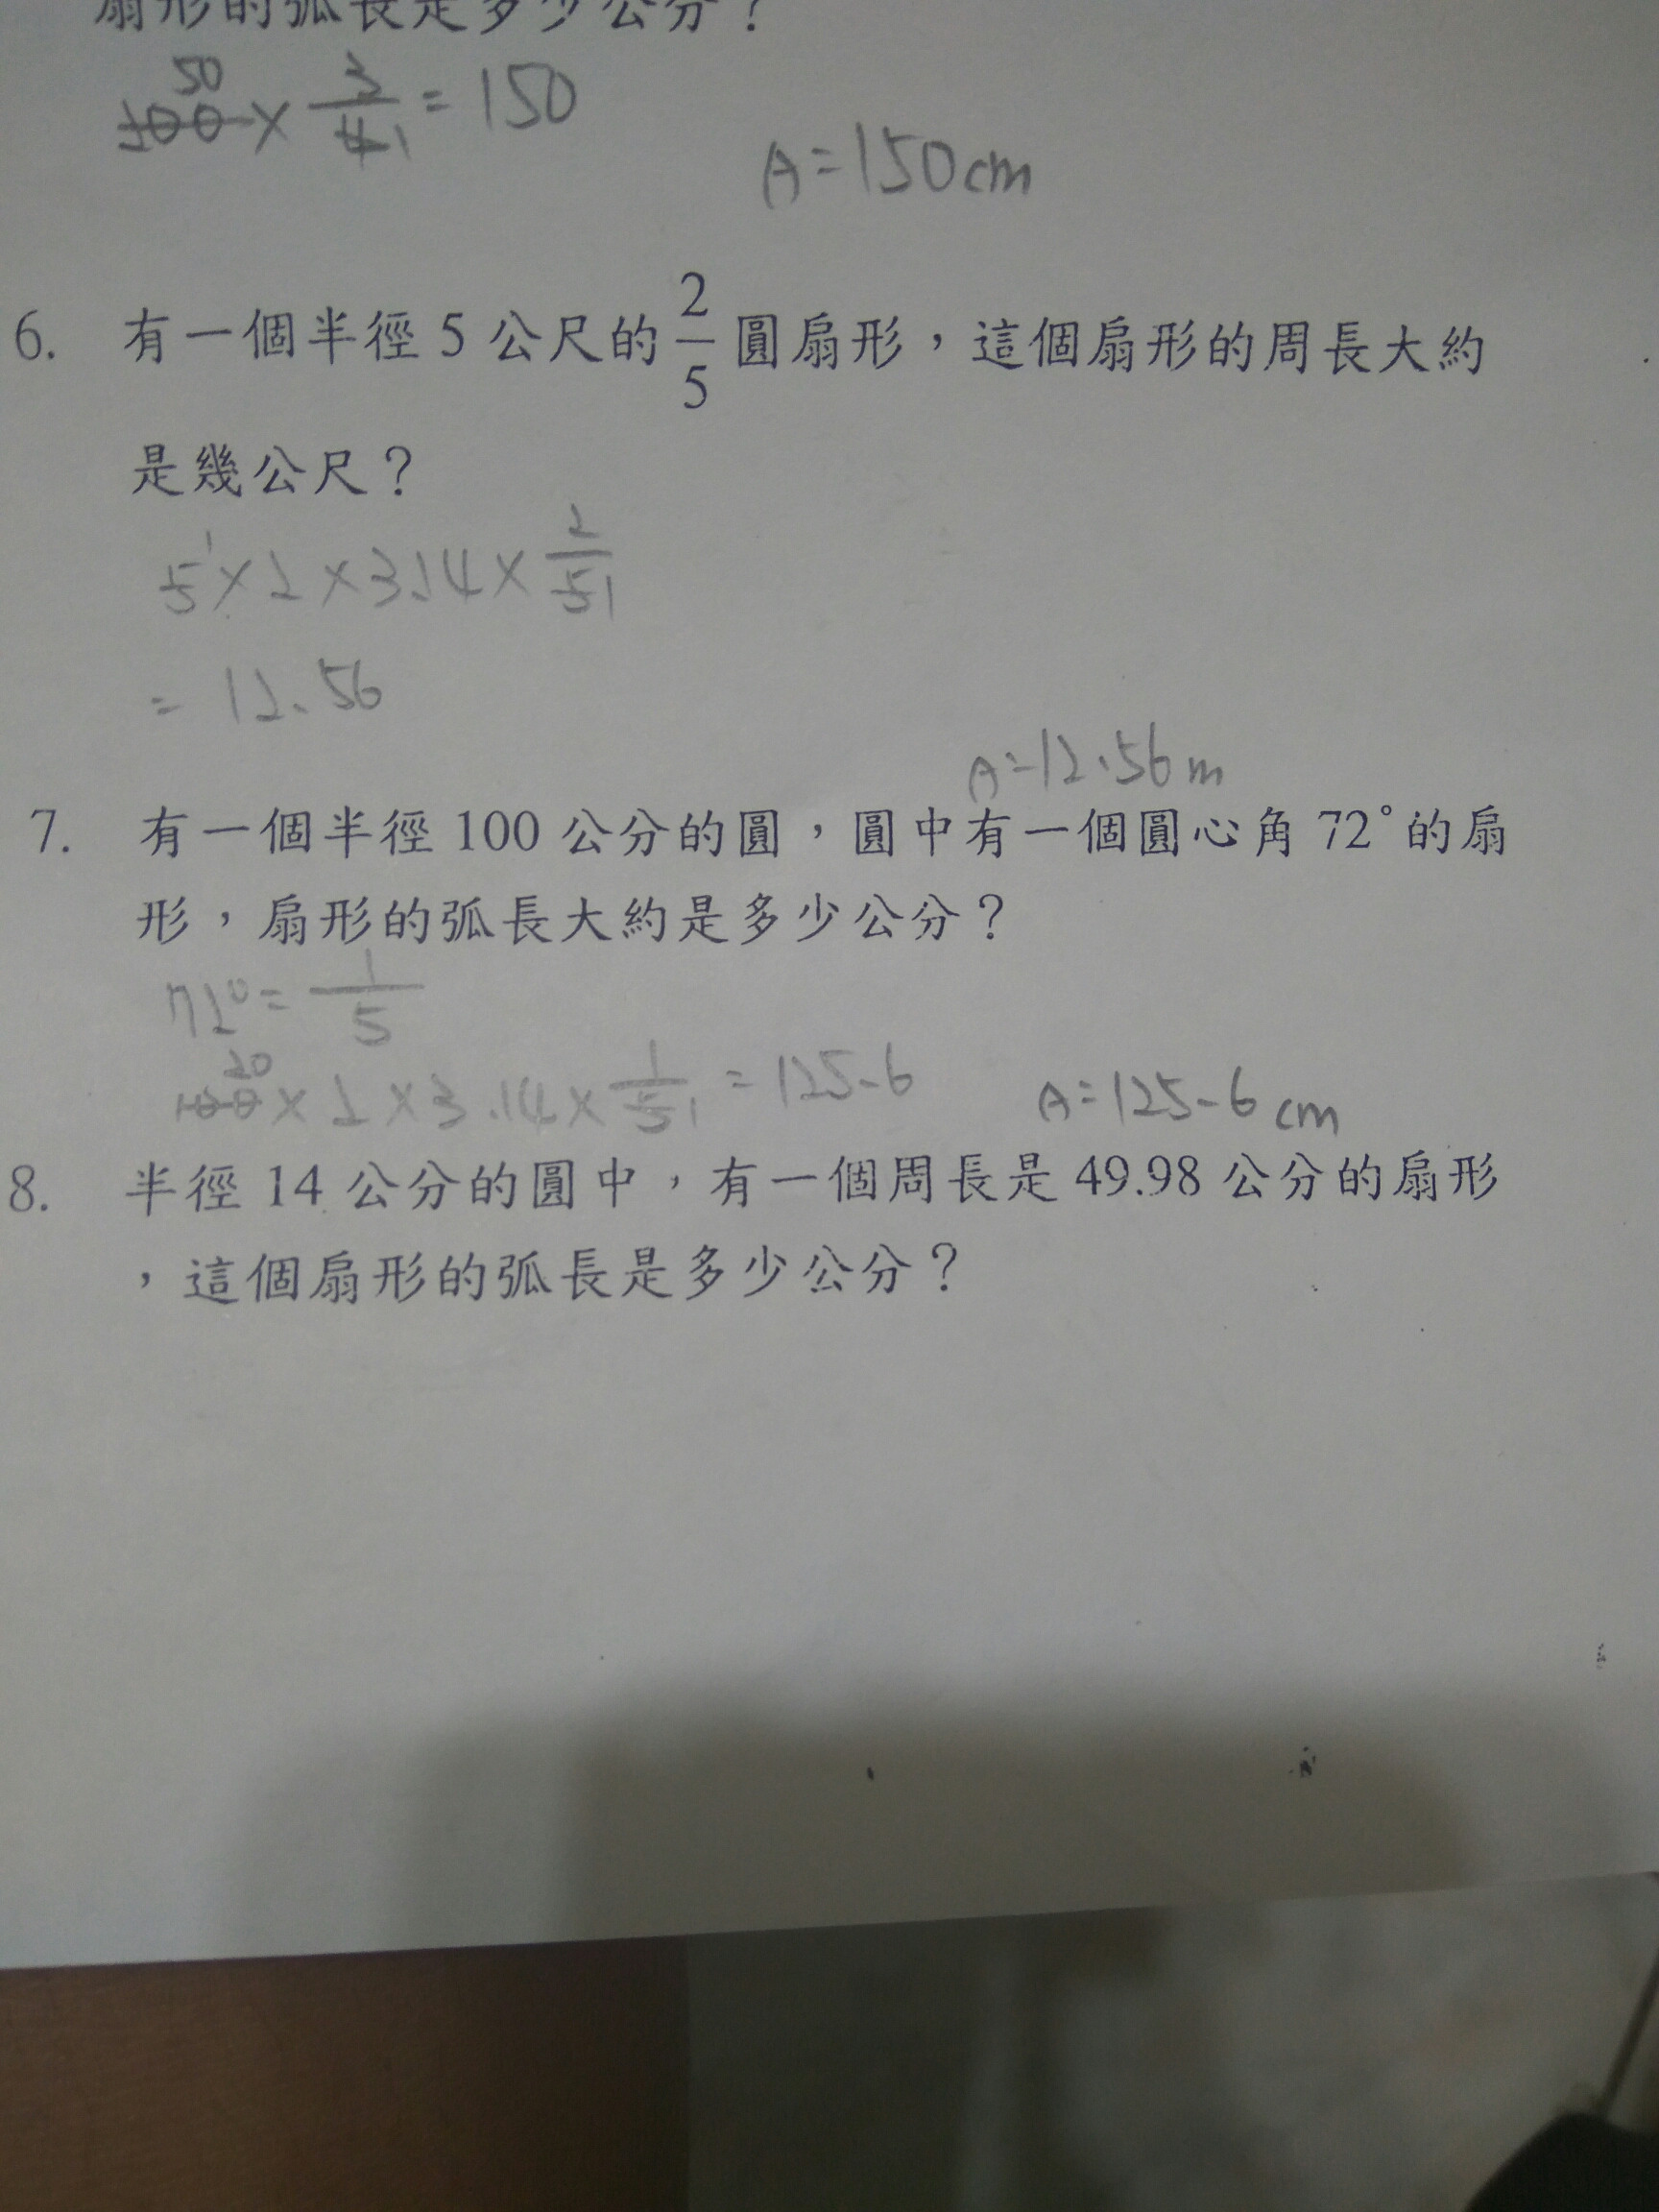 扇形的弧長是多少公分？
50
100 × 3/4 1 = 150
A=150cm
6. 有一個半徑 5 公尺的 2/5 圓扇形，這個扇形的周長大約
是幾公尺？
5 1 × 2 × 3.14 × 2/5 1
= 12.56
A=12.56 m
7. 有一個半徑 100 公分的圓，圓中有一個圓心角 72° 的扇
形，扇形的弧長大約是多少公分？
72° = 1/5
20
100 × 2 × 3.14 × 1/5 1 = 125.6
A=125.6 cm
8. 半徑 14 公分的圓中，有一個周長是 49.98 公分的扇形
，這個扇形的弧長是多少公分？